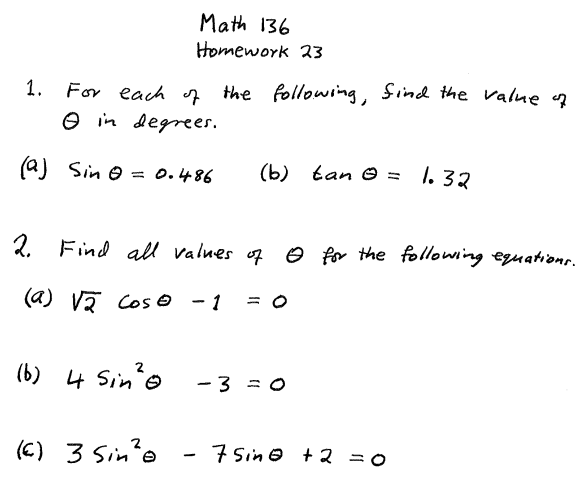 Math 136
Homework 23
1. For each of the following, find the value of
θ in degrees.
(a) Sin θ = 0.486 (b) tan θ = 1.32
2. Find all values of θ for the following equations.
(a) √2 Cos θ - 1 = 0
(b) 4 Sin²θ - 3 = 0
(c) 3 Sin²θ - 7 Sin θ + 2 = 0